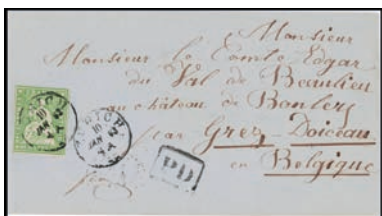 Monsieur
Monsieur Le Comte Edgar
du Val de Beaulieu
au château de
par Grez-Doiceau
en Belgique
ZÜRICH
10
JAN
PD